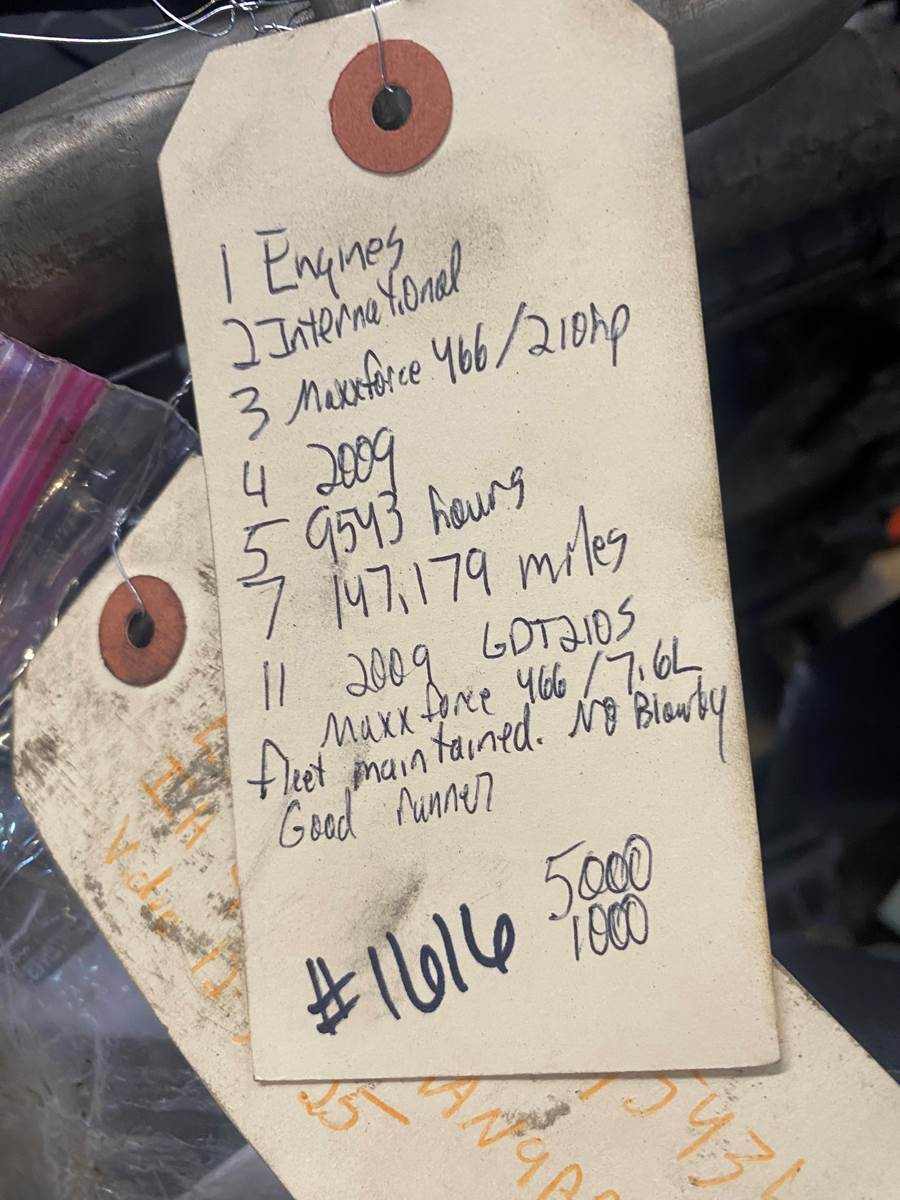 1 Engines
2 International
3 Maxxforce 466/210hp
4 2009
5 9543 hours
7 147,179 miles
11 2009 GDT210S
Maxxforce 466/7.6L
fleet maintained. NO Blowby
Good runner
5000
#1616 1000